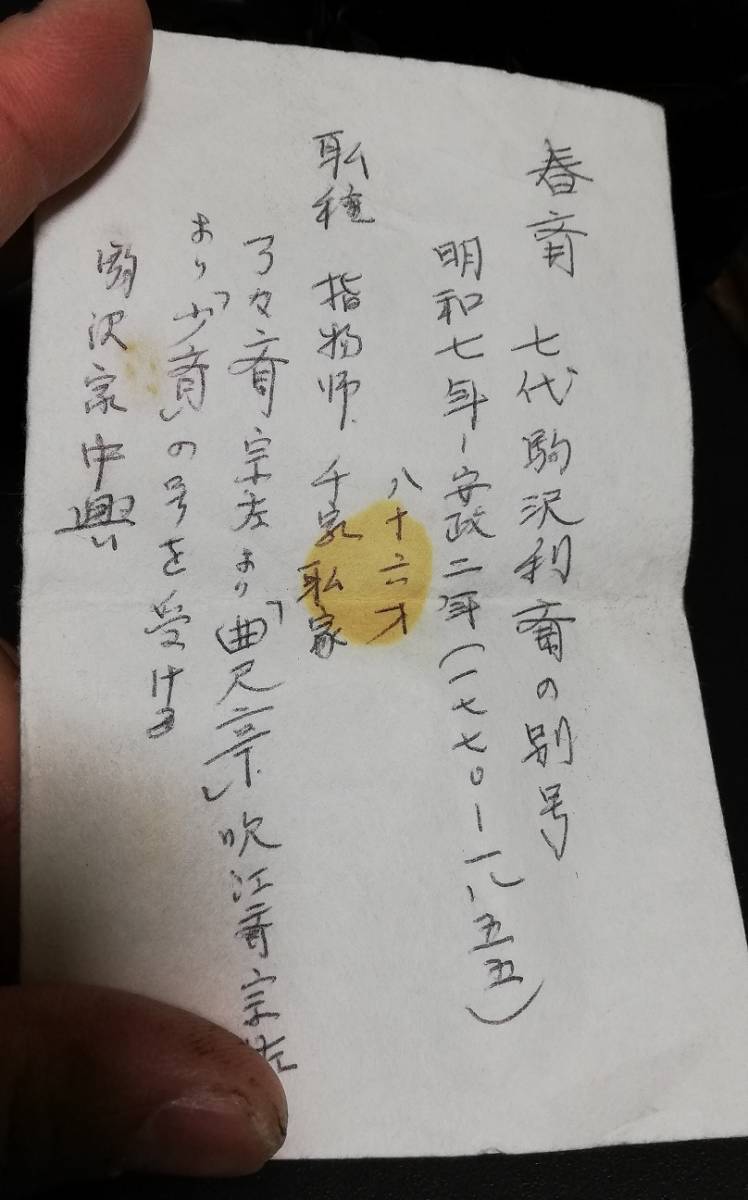 春斎 七代駒沢利斎の別号
明和七年-安政二年(一七七〇-一八五五)
八十六才
耺種 指物師 千家耺家
了々斎宗左より「曲尺亭」吹江斎宗左
より「少斎」の号を受ける
駒沢家中興